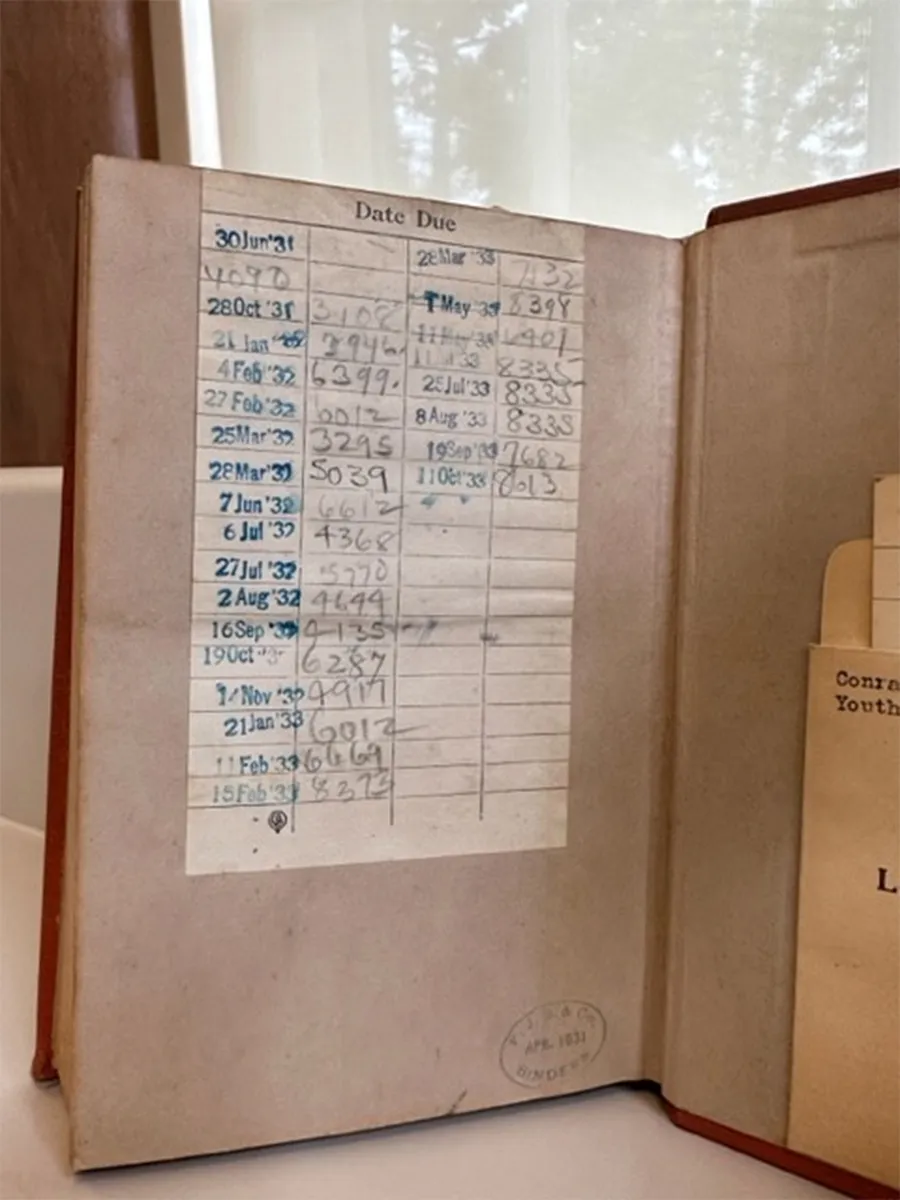 Date Due
30 Jun '31
4090
28 Oct '31 3108
21 Jan 3946
4 Feb '32 6399.
27 Feb '32 6012
25 Mar '32 3295
28 Mar '32 5039
7 Jun '32 6612
6 Jul '32 4368
27 Jul '32 5770
2 Aug '32 4644
16 Sep 4135
19 Oct 6287
Nov '32 4917
21 Jan '33 6012
11 Feb '33 6469
15 Feb '33 8373
28 Mar '33
7132
1 May '33 8394
8335
25 Jul '33 8335
8 Aug '33 8335
19 Sep '33 7682
11 Oct '33 8613
& Co.
APR. 1931
BINDERS
Conra
Youth
L